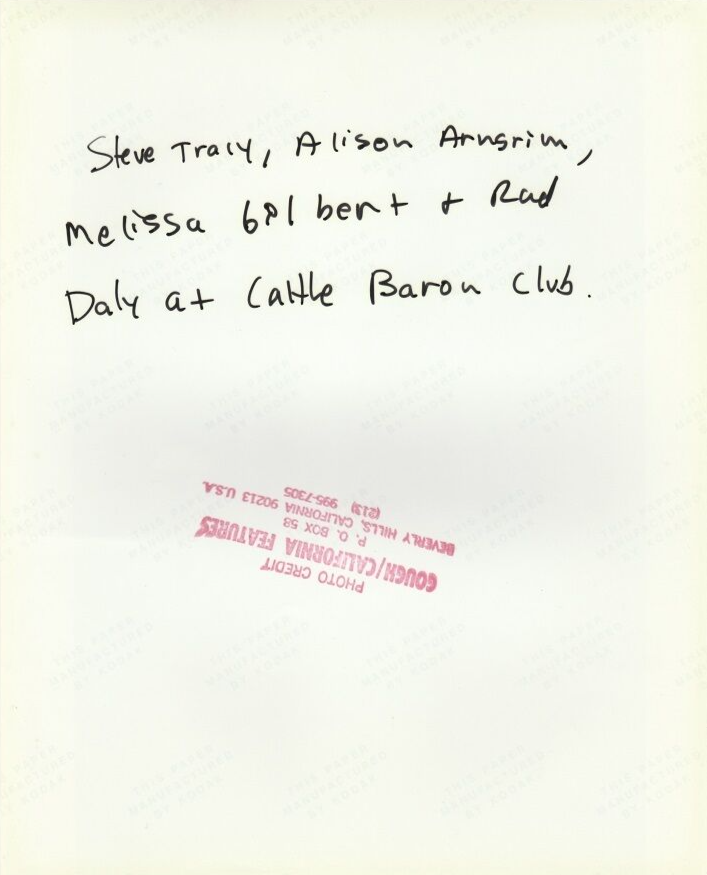 Steve Tracy, Alison Arngrim,
Melissa Gilbert + Rad
Daly at Cattle Baron Club.
PHOTO CREDIT
GOUGH/CALIFORNIA FEATURES
P. O. BOX 53
BEVERLY HILLS, CALIFORNIA 90213 U.S.A.
(213) 995-7305
THIS PAPER
MANUFACTURED
BY KODAK